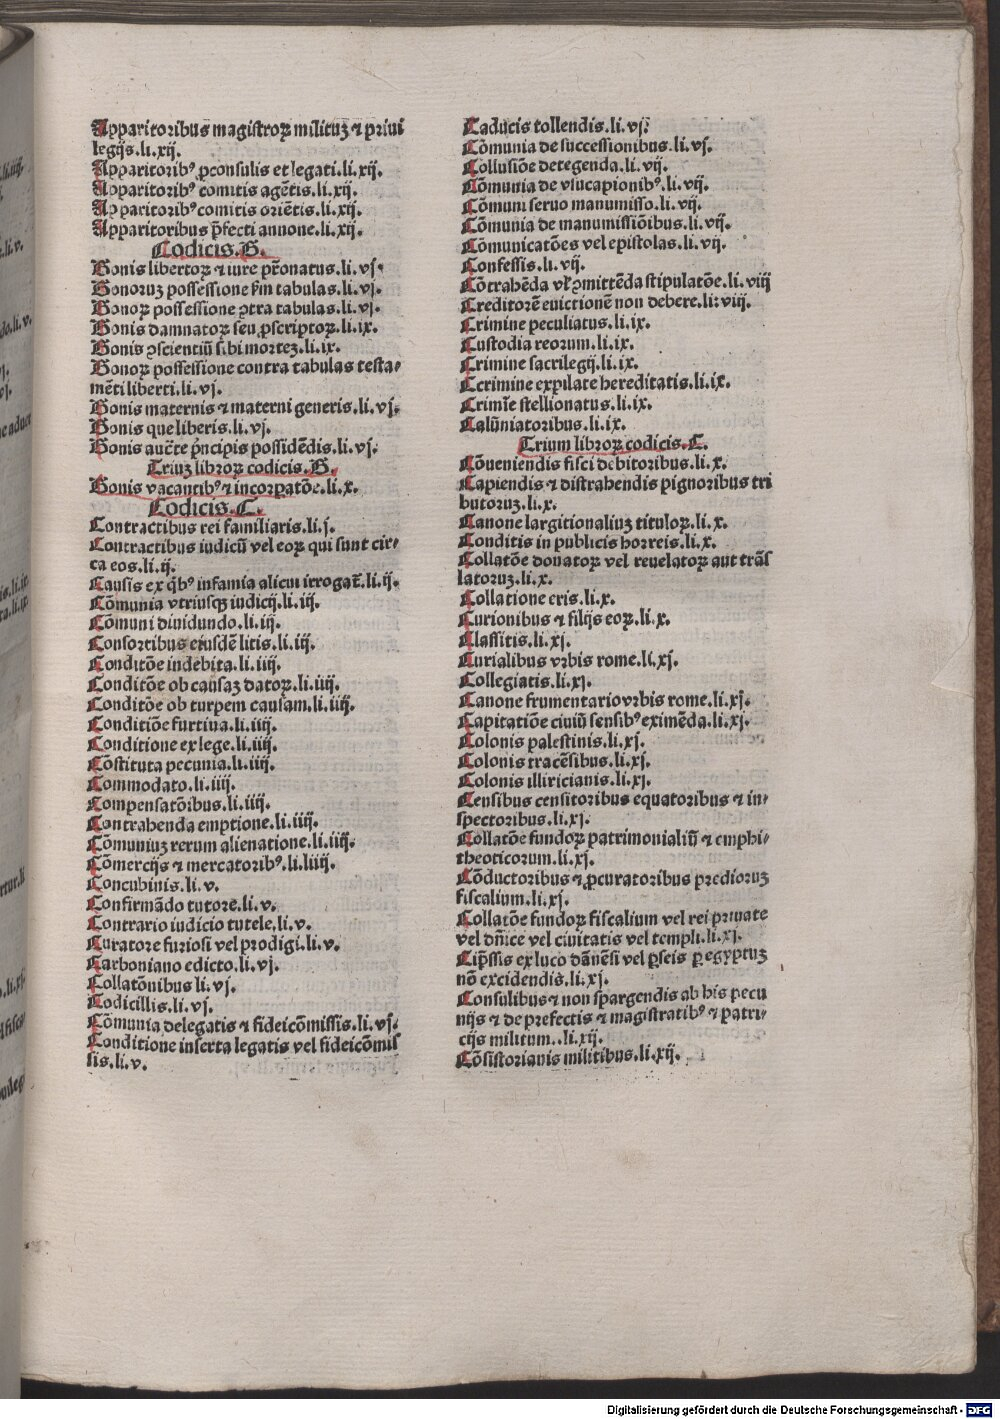 Apparitoribus magistroꝝ milituꝫ ⁊ priui
legijs.li.xij.
Apparitoribꝰ ꝓconsulis et legati.li.xij.
Apparitoribꝰ comitis agētis.li.xij.
Apparitoribꝰ comitis oriētis.li.xij.
Apparitoribus p̄fecti annone.li.xij.
Codicis.B.
Bonis libertoꝝ ⁊ iure pr̄onatus.li.vj.
Bonoruꝫ possessione ẜm tabulas.li.vj.
Bonoꝝ possessione ꝯtra tabulas.li.vj.
Bonis damnatoꝝ seu ꝓscriptoꝝ.li.ix.
Bonis ꝯscientiū sibi morteꝫ.li.ix.
Bonoꝝ possessione contra tabulas testa-
mēti liberti.li.vj.
Bonis maternis ⁊ materni generis.li.vj.
Bonis que liberis.li.vj.
Bonis auct̄e pncipis possidēdis.li.vj.
Triuꝫ libroꝝ codicis.B.
Bonis vacantibꝰ ⁊ incorꝑatōe.li.x.
Codicis.C.
Contractibus rei familiaris.li.j.
Contractibus iudicū vel eoꝝ qui sunt cir-
ca eos.li.ij.
Causis ex qbꝰ infamia alicui irrogat̄.li.ij.
Cōmunia vtriusqꝫ iudicij.li.iij.
Cōmuni diuidundo.li.iij.
Consortibus eiusdē litis.li.iij.
Conditōe indebita.li.iiij.
Conditōe ob causaꝫ datoꝝ.li.iiij.
Conditōe ob turpem causam.li.iiij.
Conditiōe furtiua.li.iiij.
Conditione ex lege.li.iiij.
Cōstituta pecunia.li.iiij.
Commodato.li.iiij.
Compensatōibus.li.iiij.
Contrahenda emptione.li.iiij.
Cōmuniuꝫ rerum alienatione.li.iiij.
Cōmercijs ⁊ mercatoribꝰ.li.liiij.
Concubinis.li.v.
Confirmādo tutore.li.v.
Contrario iudicio tutele.li.v.
Curatore furiosi vel prodigi.li.v.
Carboniano edicto.li.vj.
Collatōnibus li.vj.
Codicillis.li.vj.
Cōmunia delegatis ⁊ fideicōmissis.li.vj.
Conditione inserta legatis vel fideicōmis
sis.li.v.
Caducis tollendis.li.vj.
Cōmunia de successionibus.li.vj.
Collusiōe detegenda.li.vij.
Cōmunia de vsucapionibꝰ.li.vij.
Cōmuni seruo manumisso.li.vij.
Cōmunia de manumissiōibus.li.vij.
Cōmunicatōes vel epistolas.li.vij.
Confessis.li.vij.
Cōtrahēda vl ꝓmittēda stipulatōe.li.viij
Creditorē euictionē non debere.li.viij.
Crimine peculiatus.li.ix.
Custodia reorum.li.ix.
Crimine sacrilegij.li.ix.
Ccrimine expilate hereditatis.li.ix.
Crimīe stellionatus.li.ix.
Calūniatoribus.li.ix.
Trium libroꝝ codicis.C.
Cōueniendis fisci debitoribus.li.x.
Capiendis ⁊ distrahendis pignoribus tri
butoruꝫ.li.x.
Canone largitionaliuꝫ tituloꝝ.li.x.
Conditis in publicis horreis.li.x.
Collatōe donatoꝝ vel reuelatoꝝ aut trās
latoruꝫ.li.x.
Collatione eris.li.x.
Curionibus ⁊ filijs eoꝝ.li.x.
Classitis.li.xj.
Curialibus vrbis rome.li.xj.
Collegiatis.li.xj.
Canone frumentario vrbis rome.li.xj.
Capitatiōe ciuiū sensibꝰ eximēda.li.xj.
Colonis palestinis.li.xj.
Colonis tracēsibus.li.xj.
Colonis illiricianis.li.xj.
Censibus censitoribus equatoribus ⁊ in-
spectoribus.li.xj.
Collatōe fundoꝝ patrimonialiū ⁊ emphi-
theoticorum.li.xj.
Cōductoribus ⁊ ꝓcuratoribus predioruꝫ
fiscalium.li.xj.
Collatōe fundoꝝ fiscalium vel rei priuate
vel dn̄ice vel ciuitatis vel templi.li.xj.
Cip̄ssis ex luco dāuēsi vel ꝑseis ꝑ egyptuꝫ
nō excidendis.li.xj.
Consulibus ⁊ non spargendis ab his pecu
nijs ⁊ de prefectis ⁊ magistratibꝰ ⁊ patri-
cijs militum..li.xij.
Cōsistorianis militibus.li.xij.
Digitalisierung gefördert durch die Deutsche Forschungsgemeinschaft - DFG